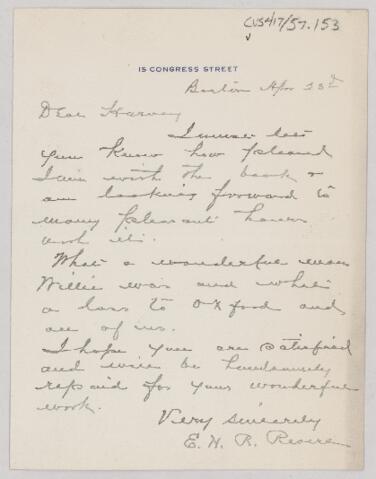 CUS417/57.153
15 CONGRESS STREET
Boston Apr 23rd
Dear Harvey
I must let
you know how pleased
I am with the book &
am looking forward to
many pleasant hours
with it.
What a wonderful man
Willie was and what
a loss to Oxford and
all of us.
I hope you are satisfied
and will be handsomely
repaid for your wonderful
work.
Very sincerely
E. H. R. Revere